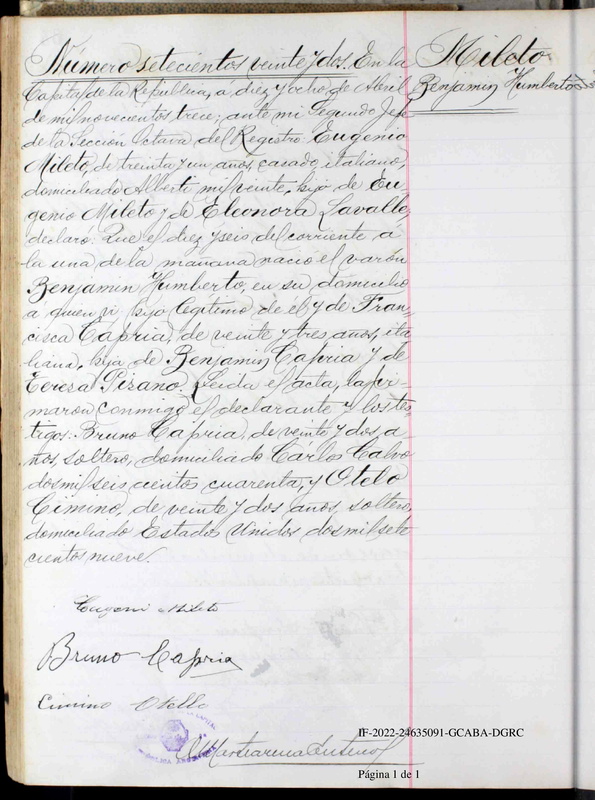 Número setecientos veinte y dos. En la
Capital de la República, a diez y ocho de Abril
de mil novecientos trece; ante mi Segundo Jefe
de la Sección Octava del Registro: Eugenio
Mileto, de treinta y un años, casado, italiano,
domiciliado Alberti mil veinte, hijo de Eu-
genio Mileto y de Eleonora Lavalle,
declaró: Que el diez y seis del corriente á
la una de la mañana nació el varón
Benjamin Humberto, en su domicilio
a quien vi hijo legítimo de él y de Fran-
cisca Capria, de veinte y tres años, ita
liana, hija de Benjamin Capria y de
Teresa Pisano. Leida el acta, la fir-
maron conmigo el declarante y los tes-
tigos: Bruno Capria, de veinte y dos a-
ños, soltero, domiciliado Carlos Calvo
dos mil seis cientos cuarenta, y Otelo
Cimino, de veinte y dos años, soltero,
domiciliado Estados Unidos dos mil sete
cientos nueve.
Mileto
Benjamin Humberto
Eugeni Mileto
Bruno Capria
Cimino Otello
IF-2022-24635091-GCABA-DGRC
Página 1 de 1